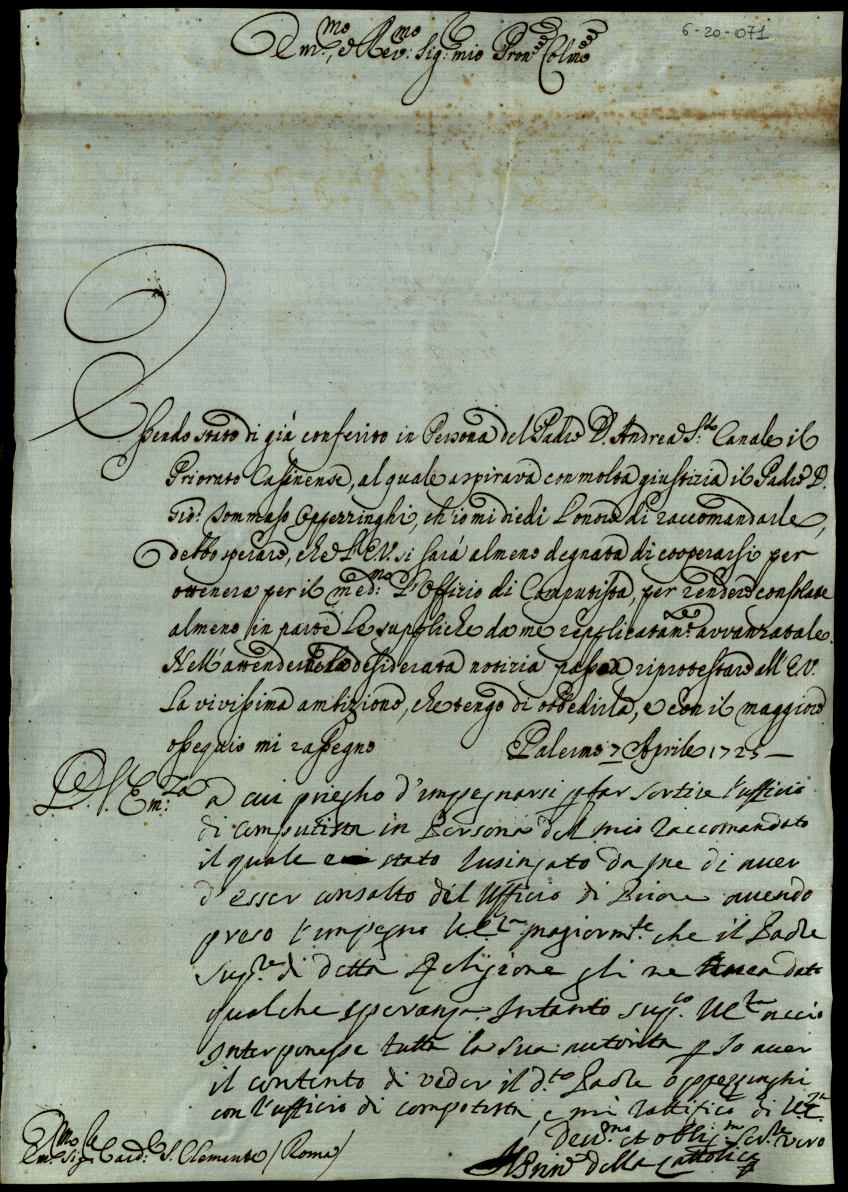 6-20-071
Em.mo, e Rev.mo Sig: mio Pron Colmo
Essendo stato di già conferito in Persona del Padre D. Andrea S.to Canale il
Priorato Casinense, al quale aspirava con molta giustizia il Padre D.
Gio: Tommaso Opezzinghi, ch'io mi diedi L'onore di raccomandarle,
debbo sperare, che L'E.V. si sarà almeno degnata di cooperarsi per
ottenere per il med.mo L'Offizio di Computista, per rendere consolate
almeno in parte Le suppliche da me replicatam.te avvanzatale.
Nell'attenderne la desiderata notizia passo a riprotestare all'E.V.
La vivissima ambizione, che tengo di obbedirla, e con il maggiore
ossequio mi rassegno Palermo 7 Aprile 1725
D. V. Em.za a cui priegho d'impegnarsi p far sortire l'ufficio
di computista in Persona del mio raccomandato
il quale e stato lusingato da me di aver
d'esser consolto del Ufficio di Priore avendo
preso l'impegno V.E.za magiorm.te che il Padre
Sup.re di detta Religione gli ne dato
qualche speranza. Intanto sup.co V.E.za accio
interponesse tutta la sua autorita p Io aver
il contento di veder il d.to Padre Oppezzinghi
con l'ufficio di computista, e mi ratifico di V.E.za
Dev.mo et obli.mo Ser.re vero
Em.mo Sig.re Card.le S. Clemente (Roma)
della Cattolica